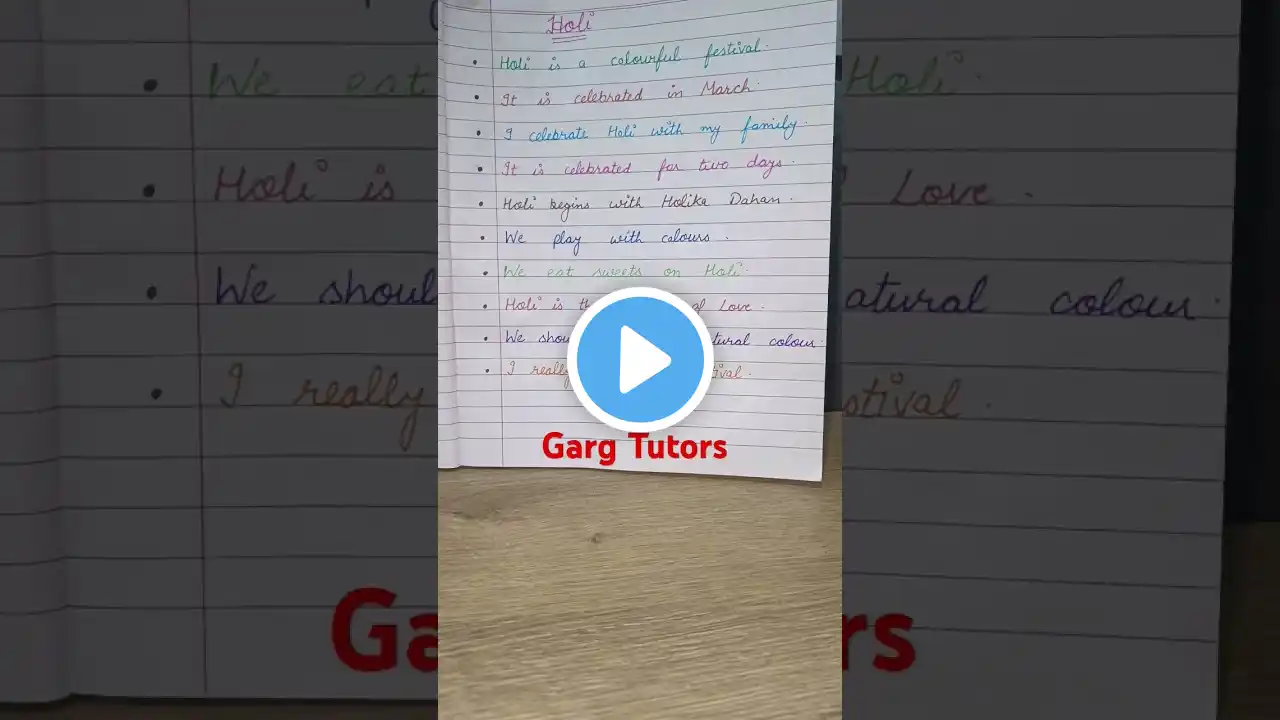 Holi
Holi is a colourful festival.
It is celebrated in March.
I celebrate Holi with my family.
It is celebrated for two days.
Holi begins with Holika Dahan.
We play with colours.
We eat sweets on Holi.
Holi is Love.
We colour.
I really
Garg Tutors